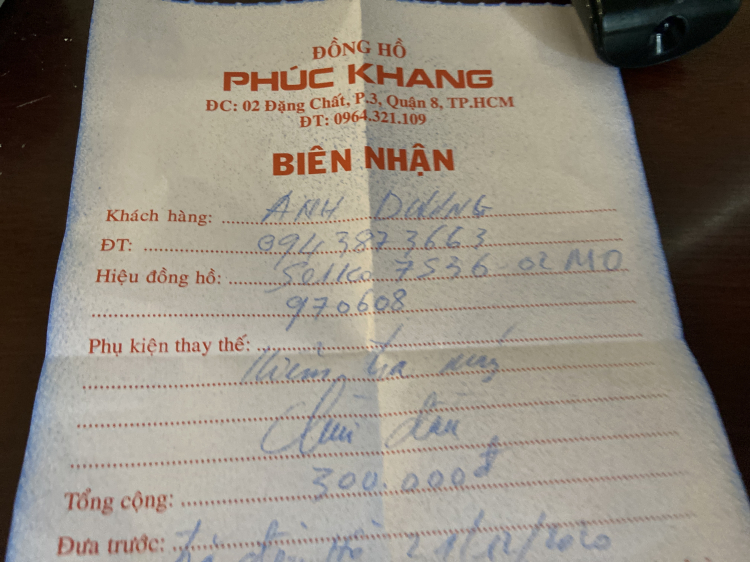 ĐỒNG HỒ
PHÚC KHANG
ĐC: 02 Đặng Chất, P.3, Quận 8, TP.HCM
ĐT: 0964.321.109
BIÊN NHẬN
Khách hàng: ANH DŨNG
ĐT: 0943873663
Hiệu đồng hồ: Seiko 7S36 02M0
970608
Phụ kiện thay thế:
Kiểm tra máy
Chùi dầu
Tổng cộng: 300.000đ
Đưa trước: 21/12/2020